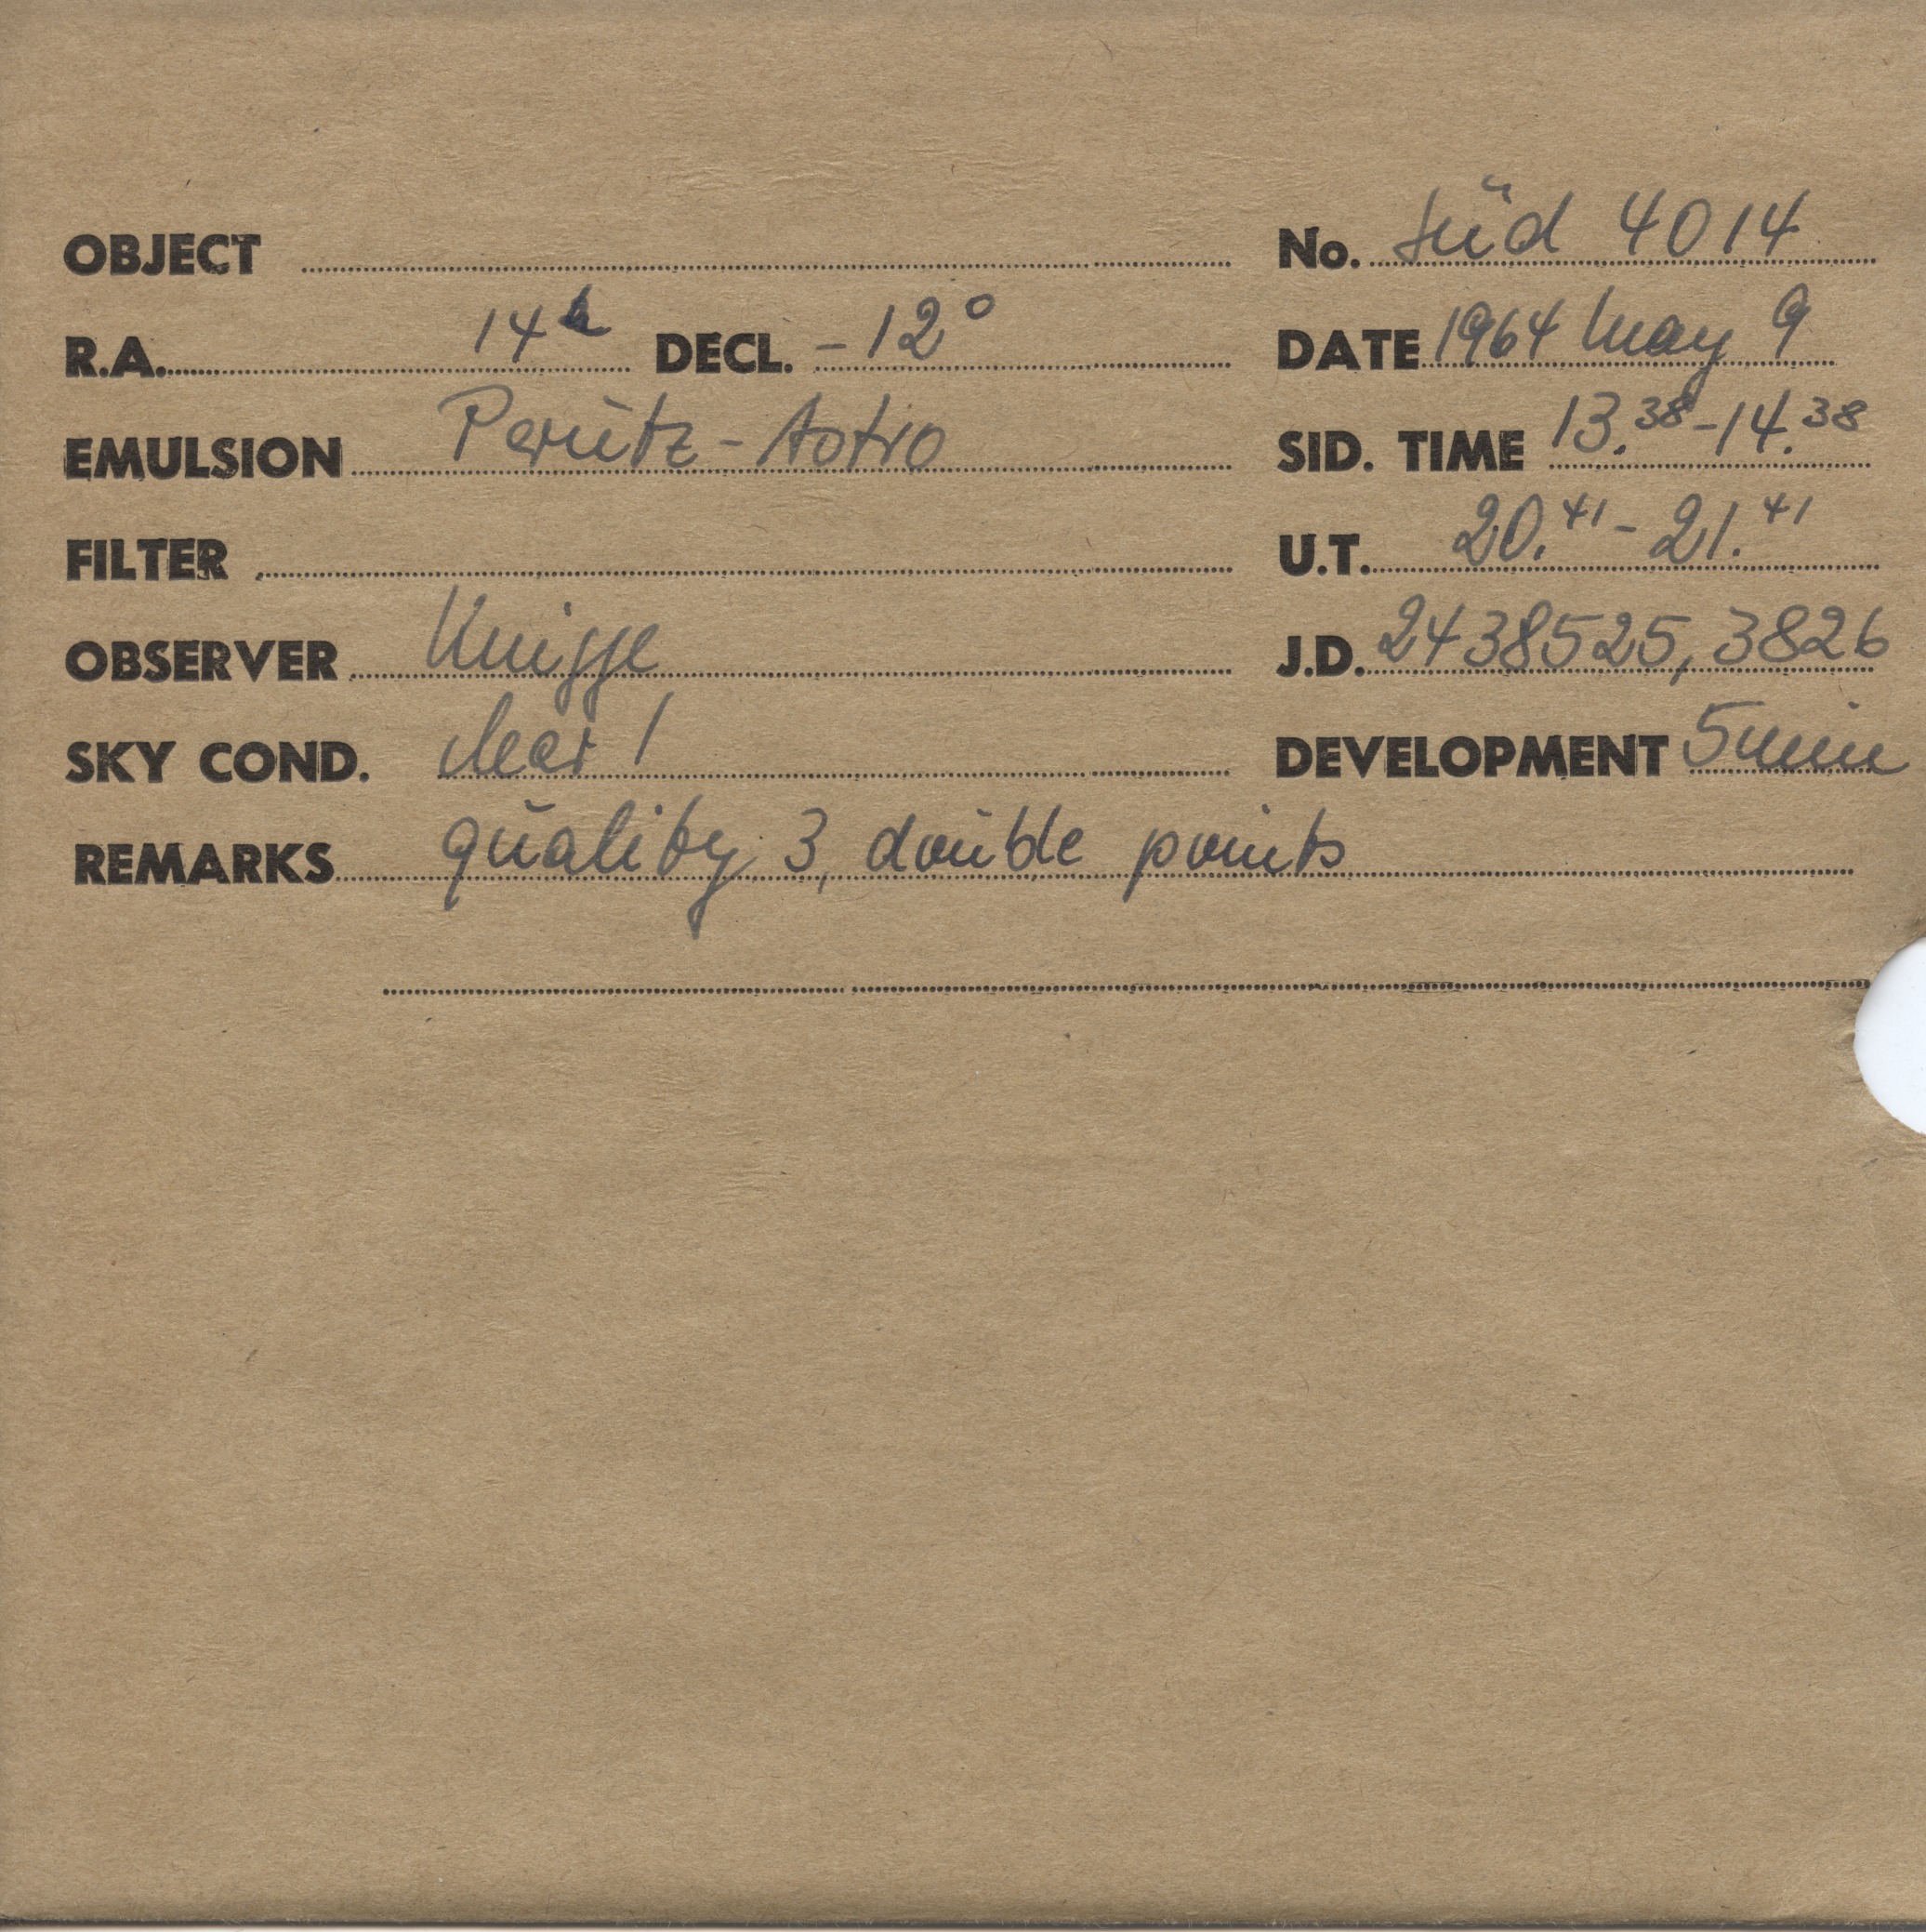 OBJECT No. Süd 4014
R.A. 14h DECL. -12° DATE 1964 May 9
EMULSION Perutz-Astro SID. TIME 13.38-14.38
FILTER U.T. 20.41-21.41
OBSERVER Knigge J.D. 2438525,3826
SKY COND. clear 1 DEVELOPMENT 5 min
REMARKS quality 3, double points